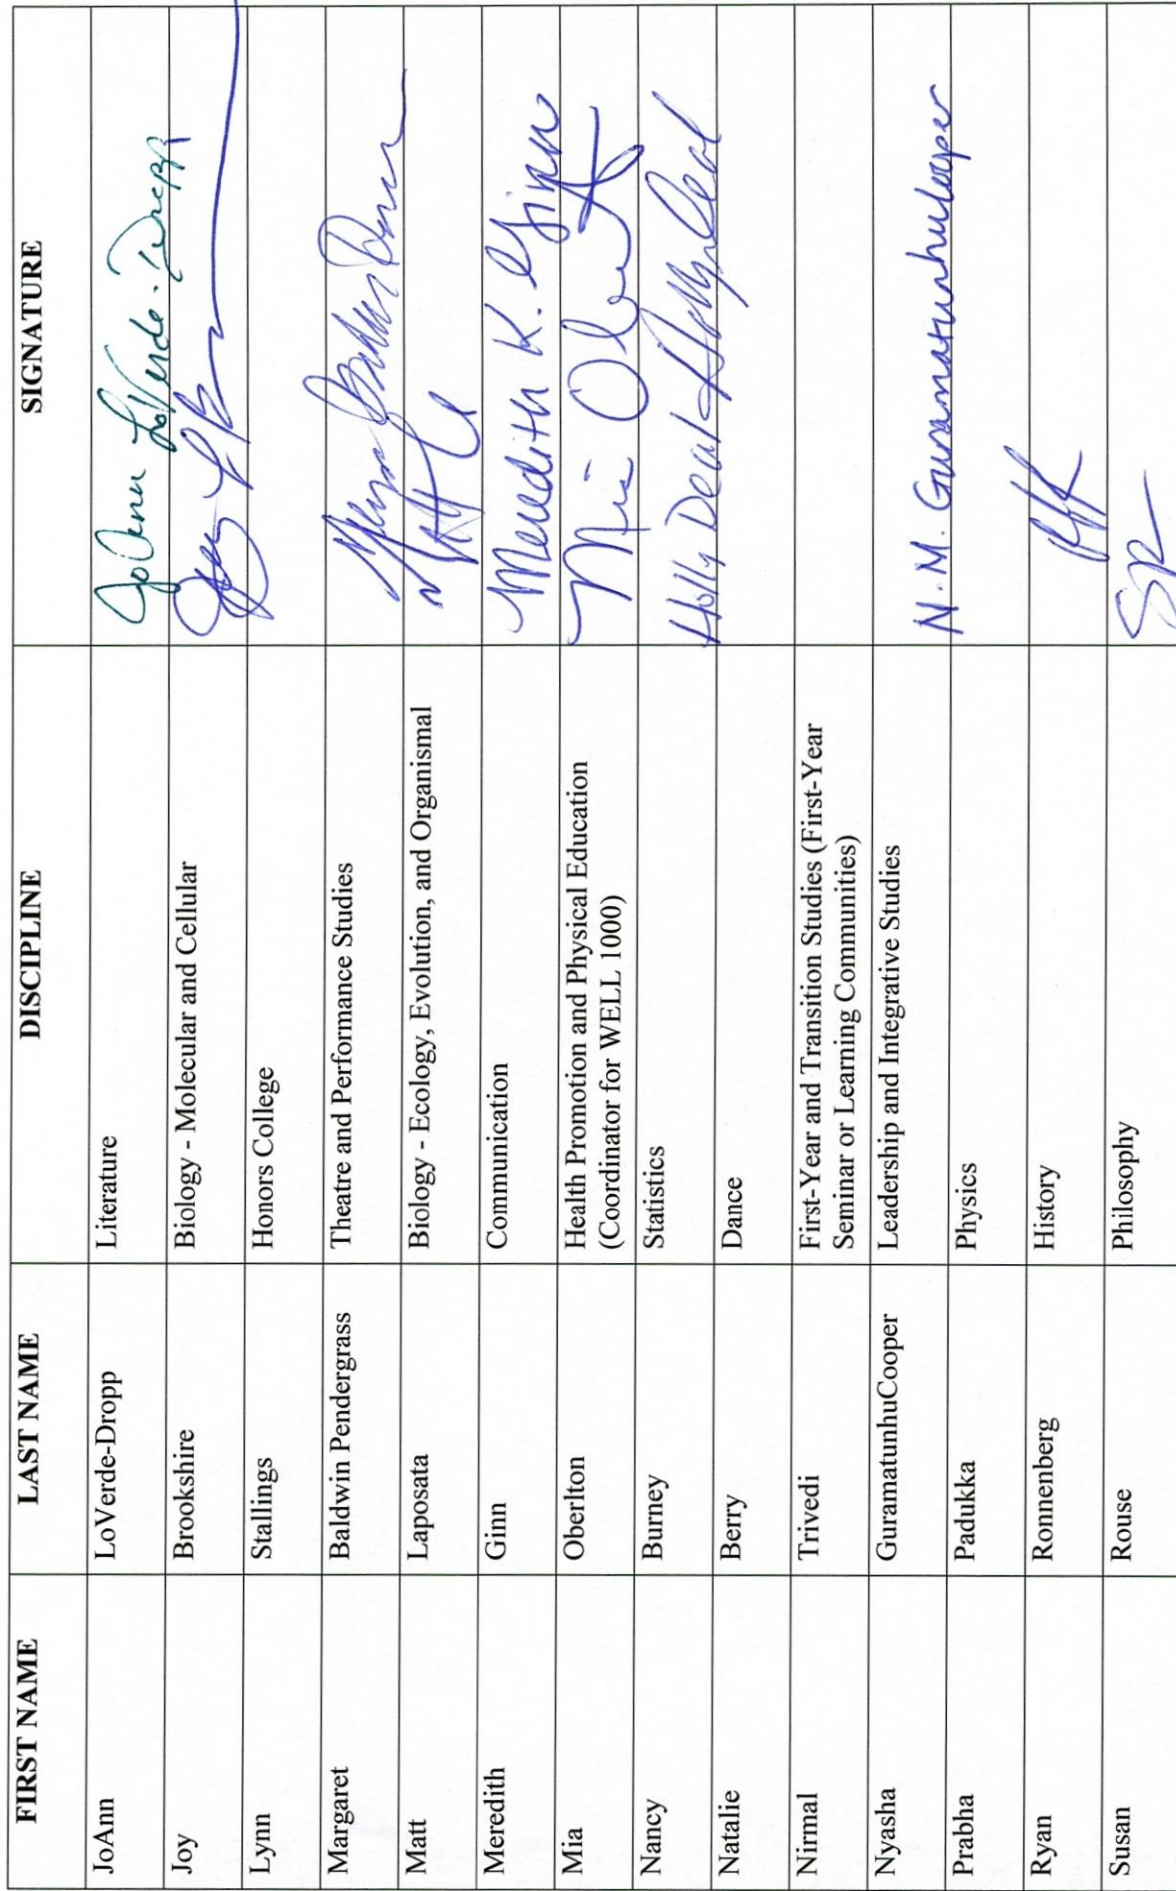 FIRST NAME LAST NAME DISCIPLINE SIGNATURE
JoAnn LoVerde-Dropp Literature JoAnn LoVerde-Dropp
Joy Brookshire Biology - Molecular and Cellular
Lynn Stallings Honors College
Margaret Baldwin Pendergrass Theatre and Performance Studies
Matt Laposata Biology - Ecology, Evolution, and Organismal
Meredith Ginn Communication Meredith K. Ginn
Mia Oberlton Health Promotion and Physical Education
(Coordinator for WELL 1000) Mia
Nancy Burney Statistics Holly Deal Holly Deal
Natalie Berry Dance
Nirmal Trivedi First-Year and Transition Studies (First-Year
Seminar or Learning Communities)
Nyasha GuramatunhuCooper Leadership and Integrative Studies N. M. GuramatunhuCooper
Prabha Padukka Physics
Ryan Ronnenberg History
Susan Rouse Philosophy SR